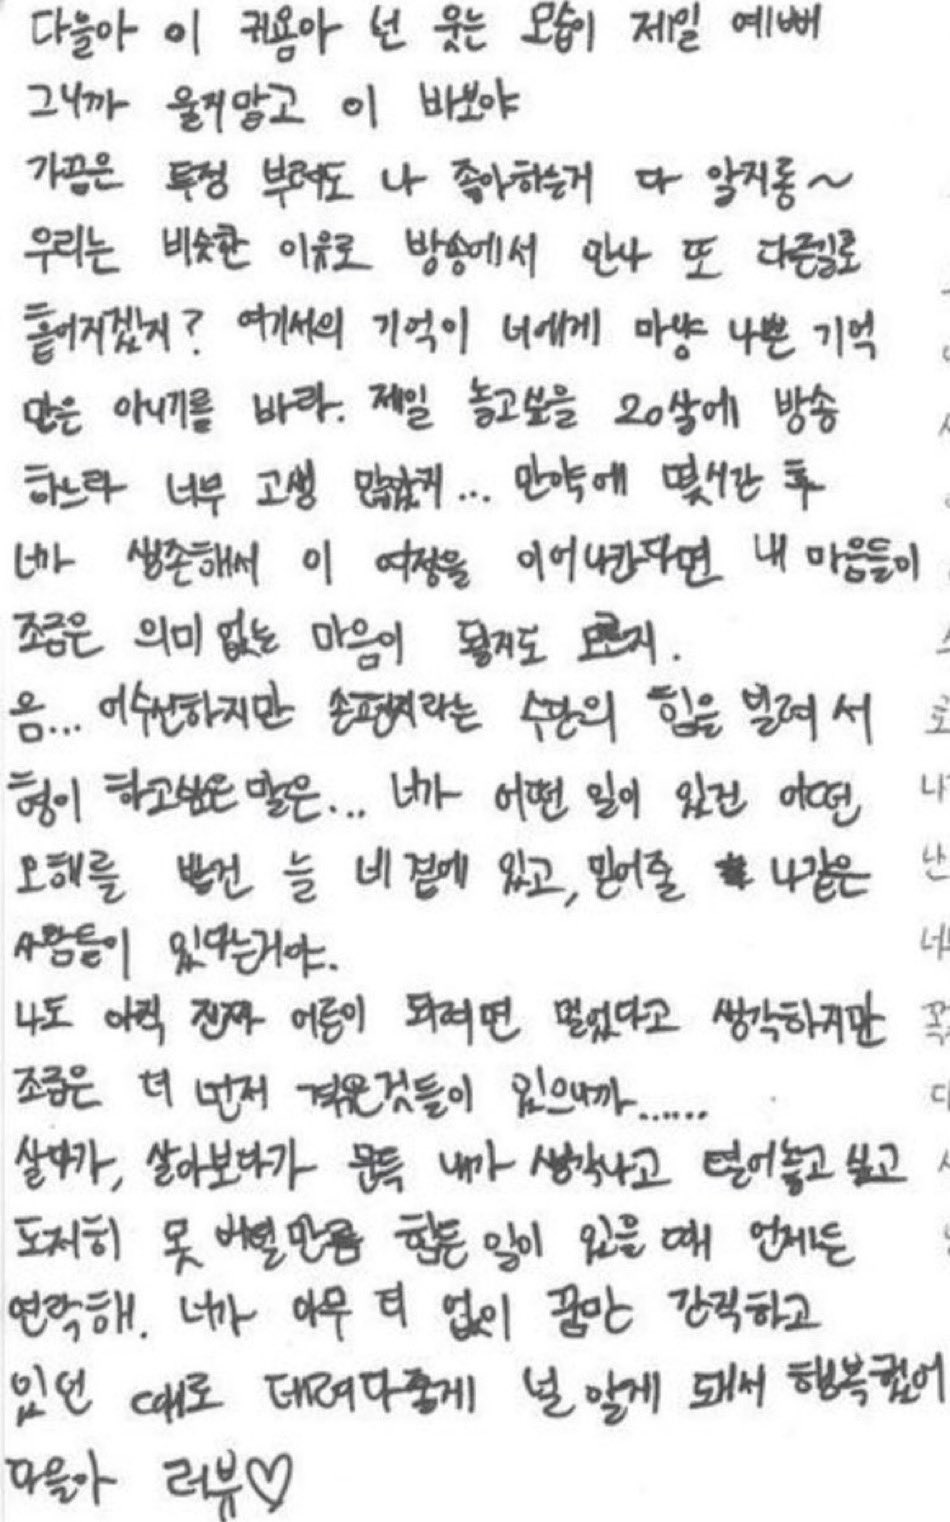 다을아 이 귀욤아 넌 웃는 모습이 제일 예뻐
그니까 울지말고 이 바보야
가끔은 투정 부려도 나 좋아하는거 다 알지롱~
우리는 비슷한 이유로 방송에서 만나 또 다른길로
흩어지겠지? 여기서의 기억이 너에게 마냥 나쁜 기억
만은 아니기를 바라. 제일 놀고싶을 20살에 방송
하느라 너무 고생 많았지... 만약에 몇시간 후
네가 생존해서 이 여정을 이어나간다면 내 마음들이
조금은 의미 없는 마음이 될지도 모르지.
음... 어수선하지만 손편지라는 수단의 힘을 빌려서
형이 하고싶은 말은... 네가 어떤 일이 있건 어떤
오해를 받건 늘 네 곁에 있고, 믿어줄 나같은
사람들이 있다는거야.
나도 아직 진짜 어른이 되려면 멀었다고 생각하지만
조금은 더 먼저 겪은것들이 있으니까......
살다가, 살아보다가 문득 내가 생각나고 털어놓고 싶고
도저히 못 버틸만큼 힘든 일이 있을 때 언제든
연락해. 너가 아무 티 없이 꿈만 간직하고
있던 때로 데려다줄게 널 알게 돼서 행복했어
다을아 러뷰♡